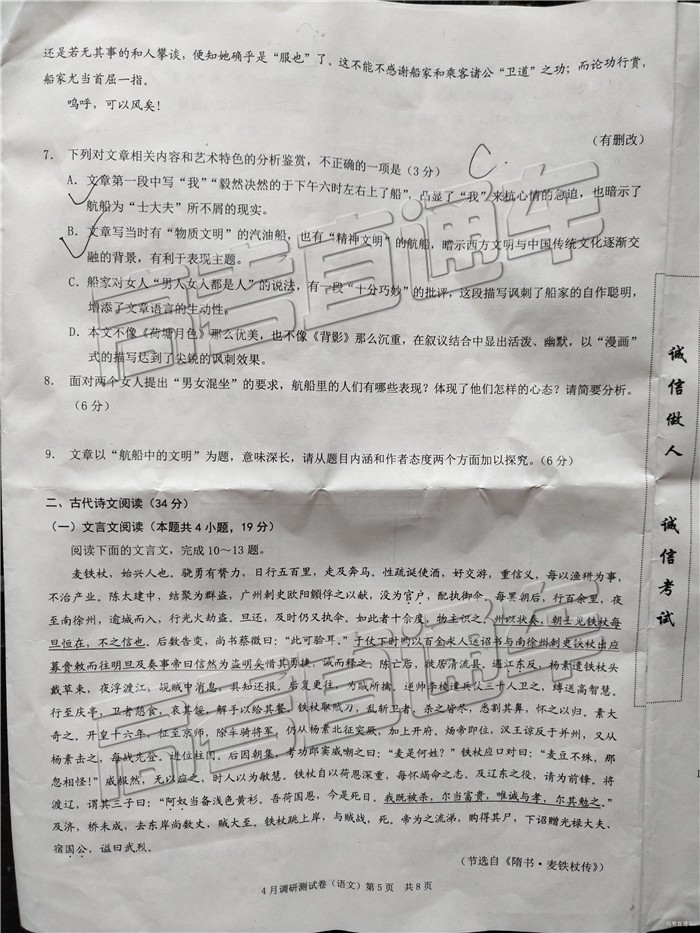 还是若无其事的和人攀谈，便知她确乎是“服也”了。这不能不感谢船家和乘客诸公“卫道”之功；而论功行赏，
船家尤当首屈一指。
呜呼，可以风矣！
（有删改）
C.
7. 下列对文章相关内容和艺术特色的分析鉴赏，不正确的一项是（3分）
A. 文章第一段中写“我”“毅然决然的于下午六时左右上了船”，凸显了“我”来杭心情的急迫，也暗示了
航船为“士大夫”所不屑的现实。
B. 文章写当时有“物质文明”的汽油船，也有“精神文明”的航船，暗示西方文明与中国传统文化逐渐交
融的背景，有利于表现主题。
C. 船家对女人“男人女人都是人”的说法，有一段“十分巧妙”的批评，这段描写讽刺了船家的自作聪明，
增添了文章语言的生动性。
D. 本文不像《荷塘月色》那么优美，也不像《背影》那么沉重，在叙议结合中显出活泼、幽默，以“漫画”
式的描写达到了尖锐的讽刺效果。
8. 面对两个女人提出“男女混坐”的要求，航船里的人们有哪些表现？体现了他们怎样的心态？请简要分析。
（6分）
9. 文章以“航船中的文明”为题，意味深长，请从题目内涵和作者态度两个方面加以探究。（6分）
二、古代诗文阅读（34分）
（一）文言文阅读（本题共4小题，19分）
阅读下面的文言文，完成10～13题。
麦铁杖，始兴人也。骁勇有膂力，日行五百里，走及奔马。性疏诞使酒，好交游，重信义，每以渔猎为事，
不治产业。陈大建中，结聚为群盗，广州刺史欧阳頠俘之以献，没为官户，配执御伞。每罢朝后，行百余里，夜
至南徐州，逾城而入，行光火劫盗。旦还，及时仍又执伞。如此者十余度，物主识之。州以状奏，朝士见铁杖每
旦恒在，不之信也。后数告变，尚书蔡徵曰：“此可验耳。”于仗下时购以百金求人送诏书与南徐州刺史铁杖出应
募赍敕而往明旦及奏事帝曰信然为盗明矣惜其勇捷，诫而释之。陈亡后，徙居清流县。遇江东反，杨素遣铁杖头
戴草束，夜浮渡江，觇贼中消息，具知还报。后复更往，为贼所擒。逆帅李稜遣兵仗三十人卫之，缚送高智慧。
行至庆亭，卫者憩食，哀其馁，解手以给其餐。铁杖取贼刀，乱斩卫者，杀之皆尽，悉割其鼻，怀之以归。素大
奇之。开皇十六年，征至京师，除车骑将军，仍从杨素北征突厥，加上开府。炀帝即位，汉王谅反于并州，又从
杨素击之，每战先登。进位柱国。后因朝集，考功郎窦威嘲之曰：“麦是何姓？”铁杖应口对曰：“麦豆不殊，那
忽相怪！”威赧然，无以应之，时人以为敏慧。铁杖自以荷恩深重，每怀竭命之志。及辽东之役，请为前锋。将
渡辽，谓其三子曰：“阿奴当备浅色黄衫。吾荷国恩，今是死日。我既被杀，尔当富贵，唯诚与孝，尔其勉之。”
及济，桥未成，去东岸尚数丈，贼大至。铁杖跳上岸，与贼战，死。帝为之流涕，购得其尸，下诏赠光禄大夫、
宿国公，谥曰武烈。
（节选自《隋书·麦铁杖传》）
4月调研测试卷（语文）第5页 共8页
诚信做人 诚信考试
高考直通车
高考直通车